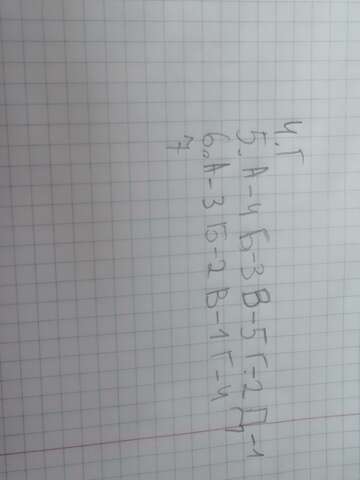 4. Г
5. А-4 Б-3 В-5 Г-2 Д-1
6. А-3 Б-2 В-1 Г-4
7